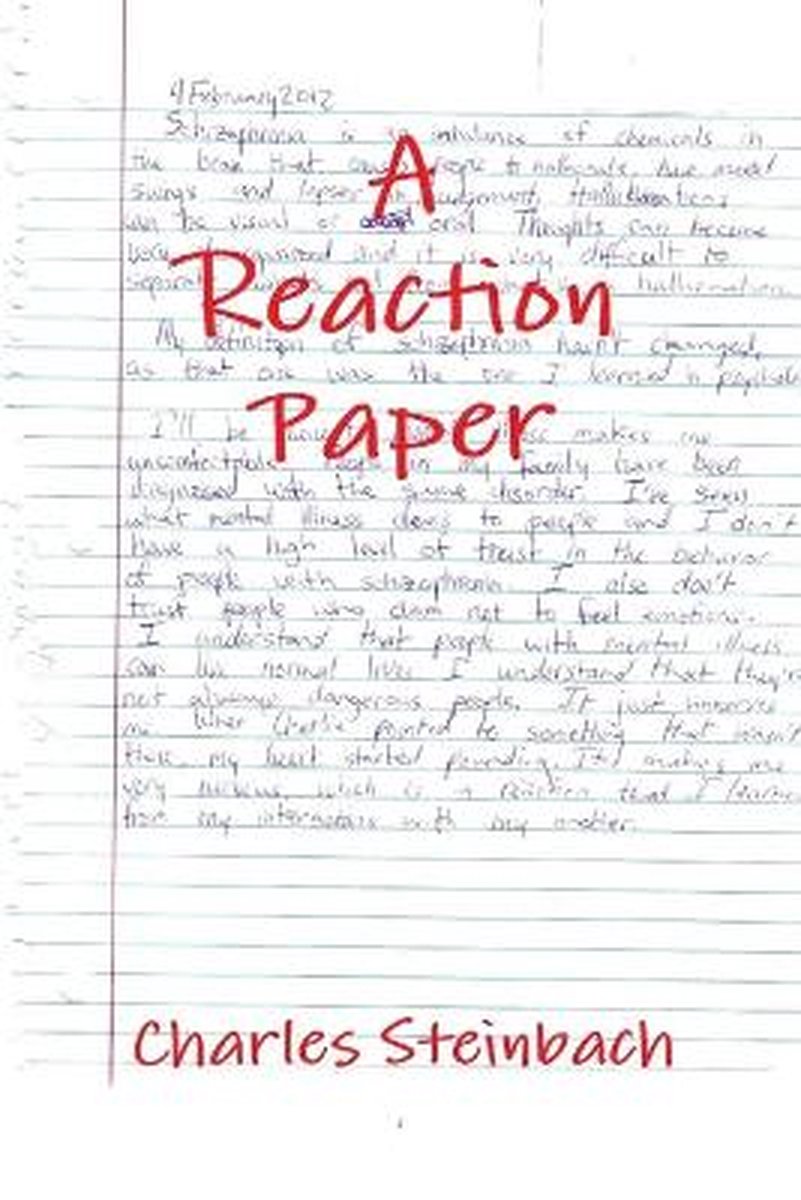 4 February 2012
Schizophrenia is an imbalance of chemicals in
the brain that people to
swings and lapses in judgement. Hallucinations
can be visual or oral Thoughts can become
very and it is very difficult to
hallucination
A
Reaction
Paper
My definition of schizophrenia hasn't changed,
as that one was the one I learned in
I'll be illness makes me
People in my family have been
diagnosed with the same disorder. I've seen
what mental illness does to people and I don't
have a high level of trust in the behavior
of people with schizophrenia. I also don't
trust people who claim not to feel emotions.
I understand that people with mental illness
can live normal lives. I understand that they're
not always dangerous people. It just unnerves
me. When Charlie pointed to something that wasn't
there, my heart started pounding. It makes me
very nervous, which is a reaction that I learned
from my interactions with my mother.
Charles Steinbach